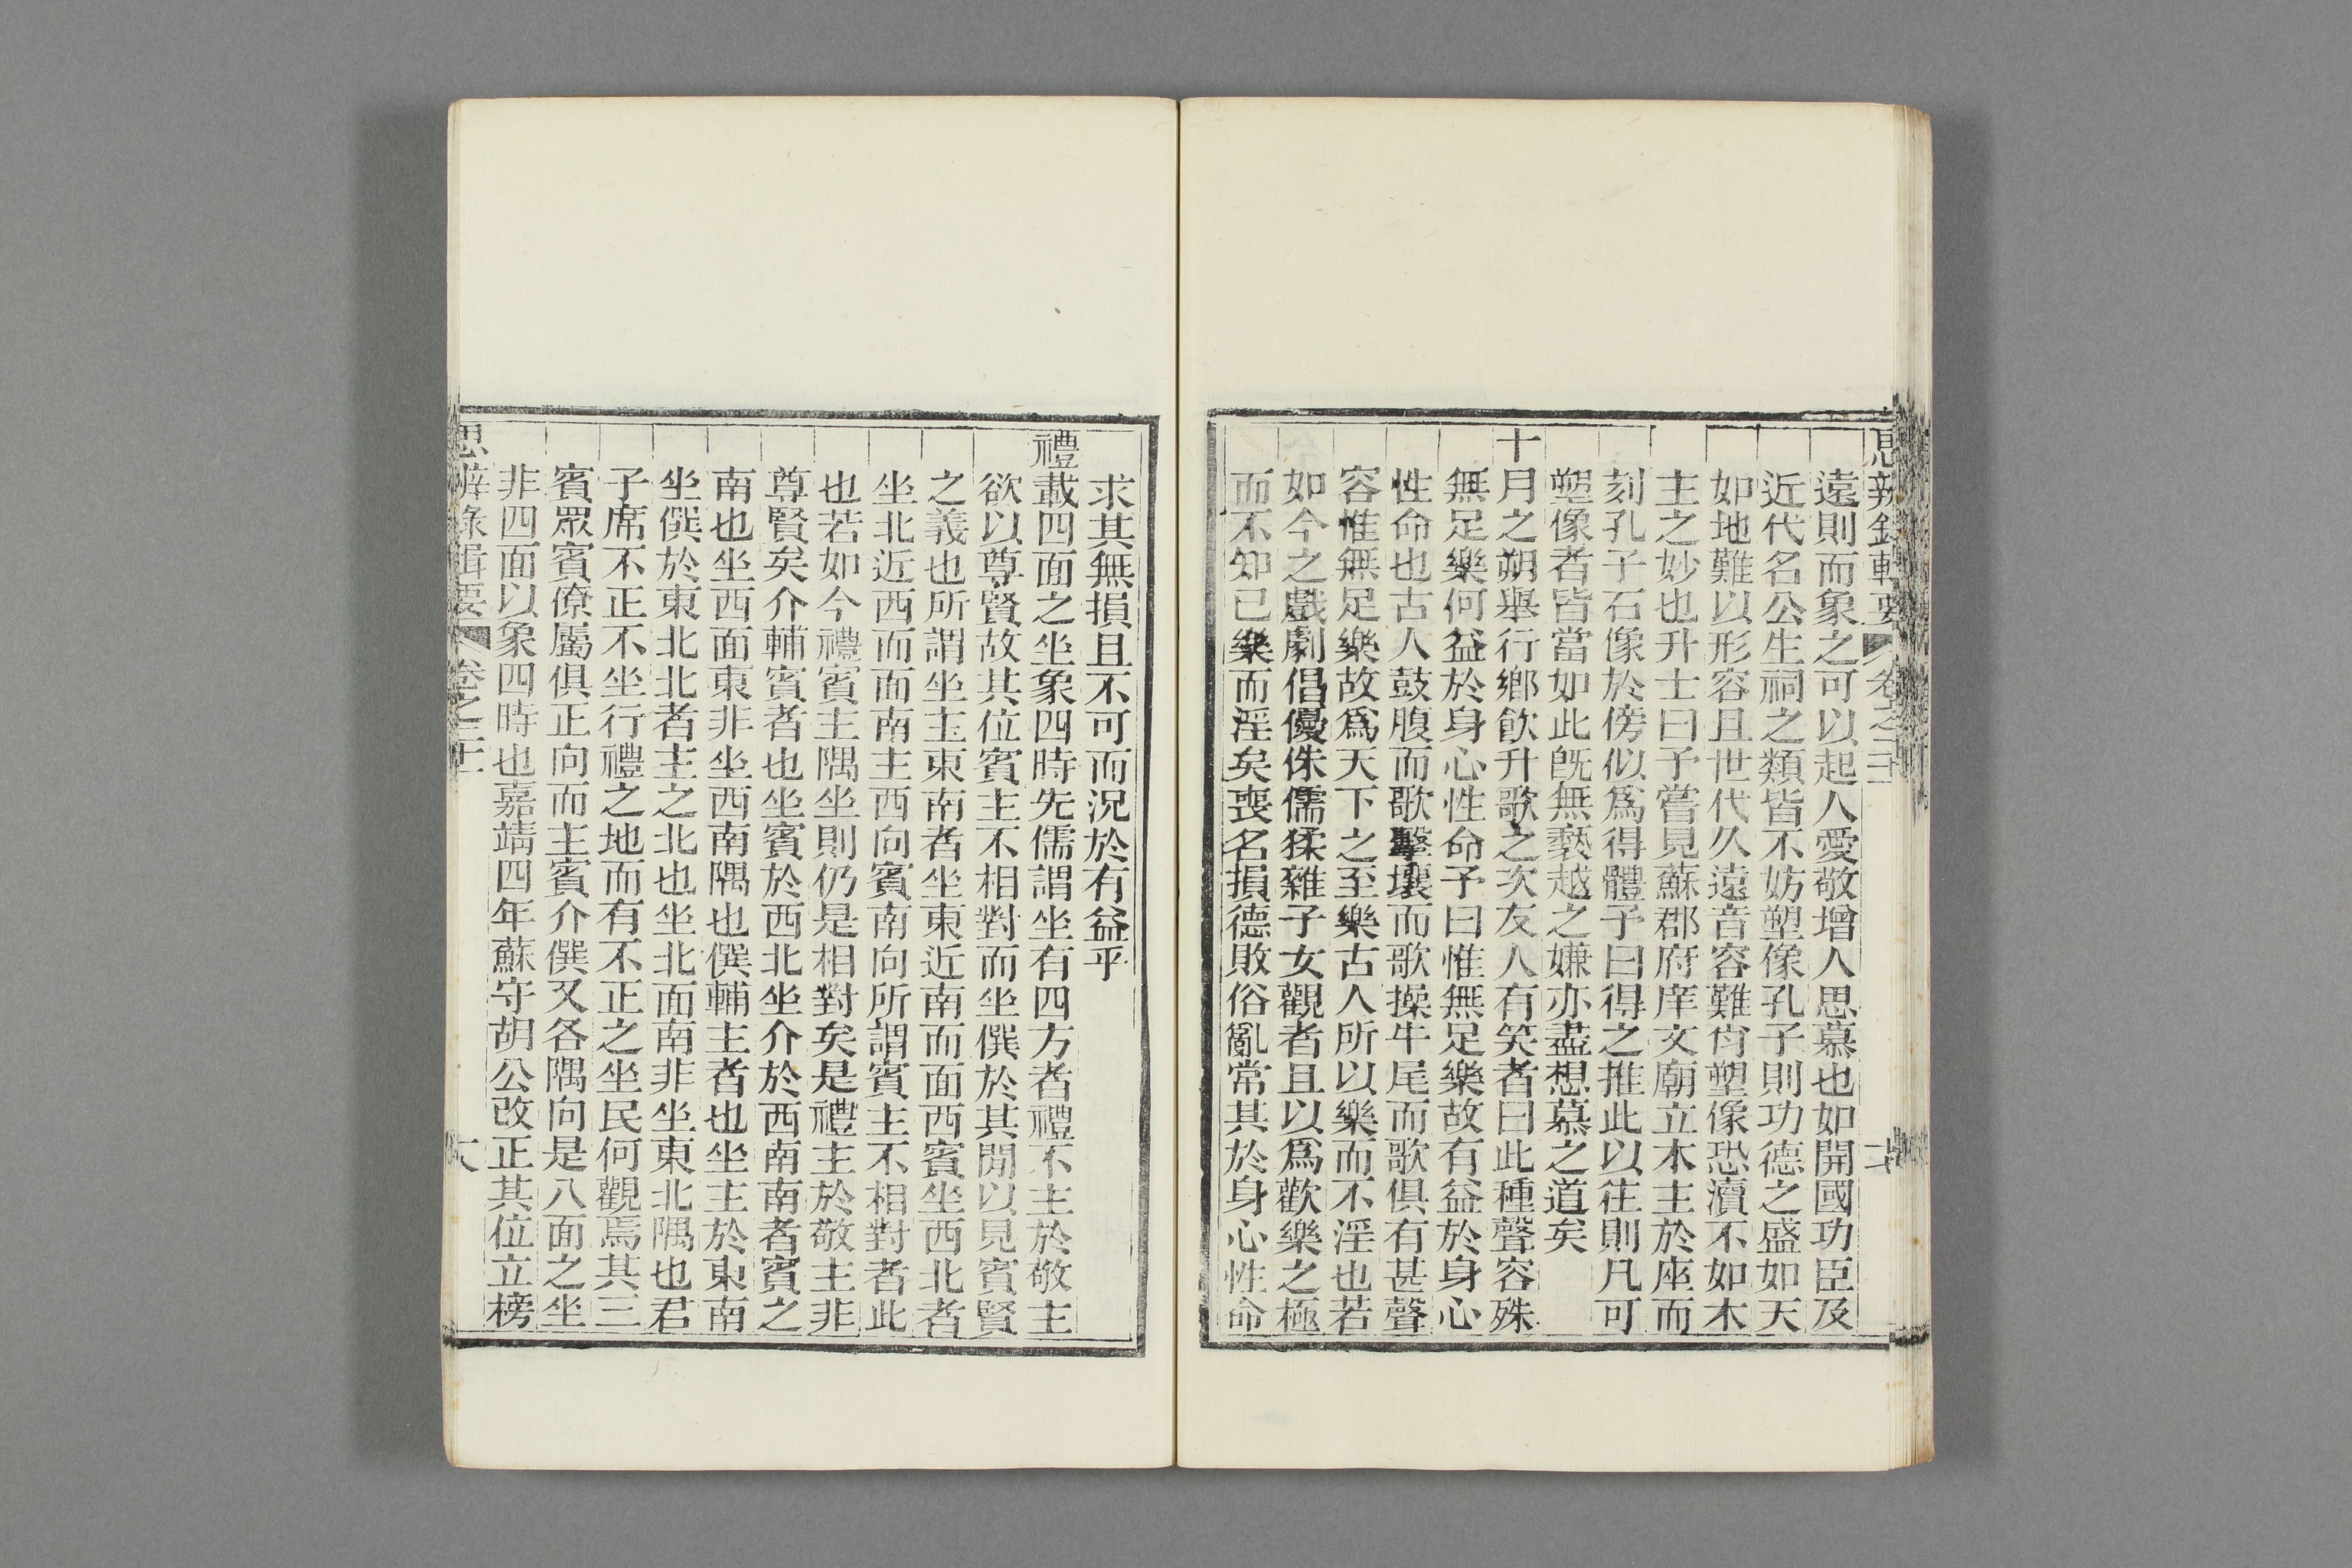 遠則而象之可以起人愛敬增人思慕也如開國功臣及
近代名公生祠之類皆不妨塑像孔子則功德之盛如天
如地難以形容且世代久遠音容難肖塑像恐瀆不如木
主之妙也升士曰予嘗見蘇郡府庠文廟立木主於座而
刻孔子石像於傍似爲得體予曰得之推此以往則凡可
塑像者皆當如此旣無褻越之嫌亦盡想慕之道矣
十月之朔舉行鄉飲升歌之次友人有笑者曰此種聲容殊
無足樂何益於身心性命予曰惟無足樂故有益於身心
性命也古人鼓腹而歌擊壤而歌操牛尾而歌俱有甚聲
容惟無足樂故爲天下之至樂古人所以樂而不淫也若
如今之戲劇倡優侏儒猱雜子女觀者且以爲歡樂之極
而不知已樂而淫矣喪名損德敗俗亂常其於身心性命
求其無損且不可而況於有益乎
禮載四面之坐象四時先儒謂坐有四方者禮不主於敬主
欲以尊賢故其位賓主不相對而坐僎於其閒以見賓賢
之義也所謂坐主東南者坐東近南而面西賓坐西北者
坐北近西而面南主西向賓南向所謂賓主不相對者此
也若如今禮賓主隅坐則仍是相對矣是禮主於敬主非
尊賢矣介輔賓者也坐賓於西北坐介於西南南者賓之
南也坐西面東非坐西南隅也僎輔主者也坐主於東南
坐僎於東北北者主之北也坐北面南非坐東北隅也君
子席不正不坐行禮之地而有不正之坐民何觀焉其三
賓眾賓僚屬俱正向而主賓介僎又各隅向是八面之坐
非四面以象四時也嘉靖四年蘇守胡公改正其位立榜